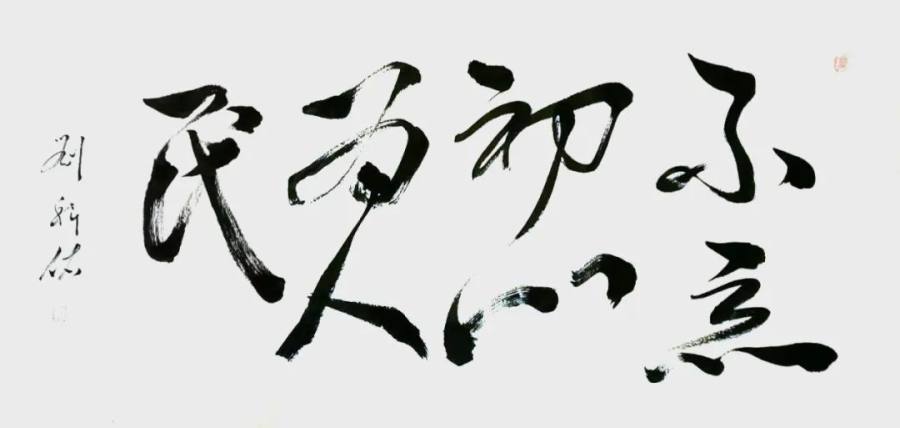 不忘
初心
为人
民
刘